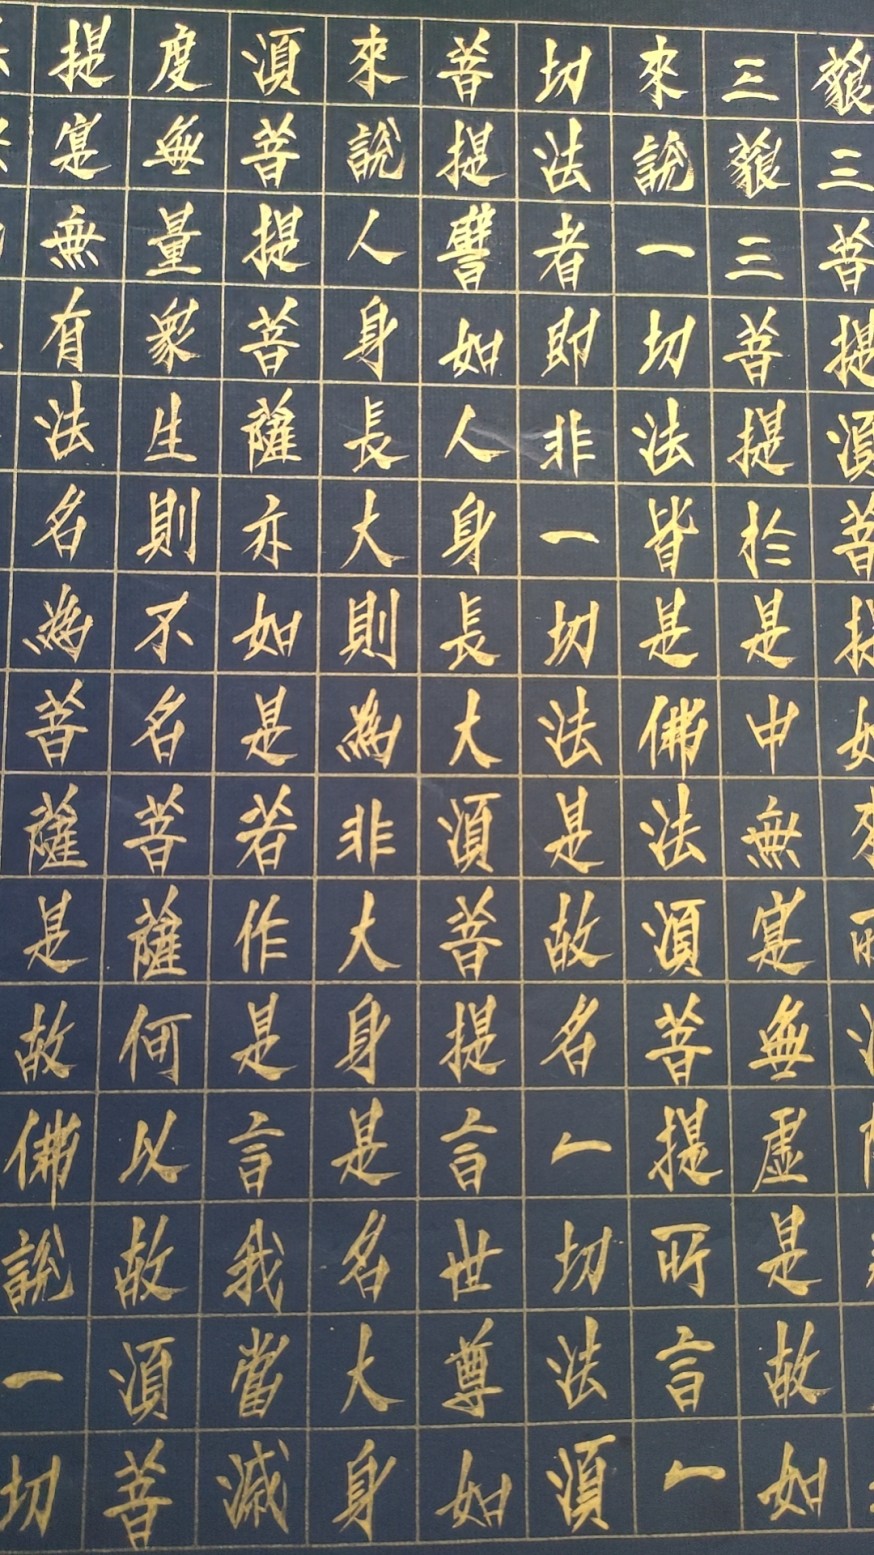 藐三菩提湏菩提如來所
三藐三菩提扵是中無寔無虛是故如
來說一切法皆是佛法湏菩提所言一
切法者即非一切法是故名一切法湏
菩提譬如人身長大湏菩提言世尊如
來說人身長大則為非大身是名大身
湏菩提菩薩亦如是若作是言我當滅
度無量眾生則不名菩薩何以故湏菩
提寔無有法名為菩薩是故佛說一切